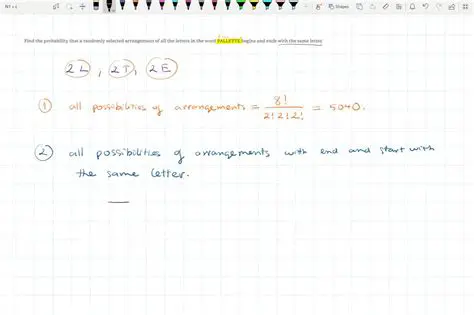 Find the probability that a randomly selected arrangement of all the letters in the word PALLETTE begins and ends with the same letter.
2L, 2T, 2E
① all possibilities of arrangements = 8! / 2!2!2! = 5040.
② all possibilities of arrangements with end and start with
the same letter.